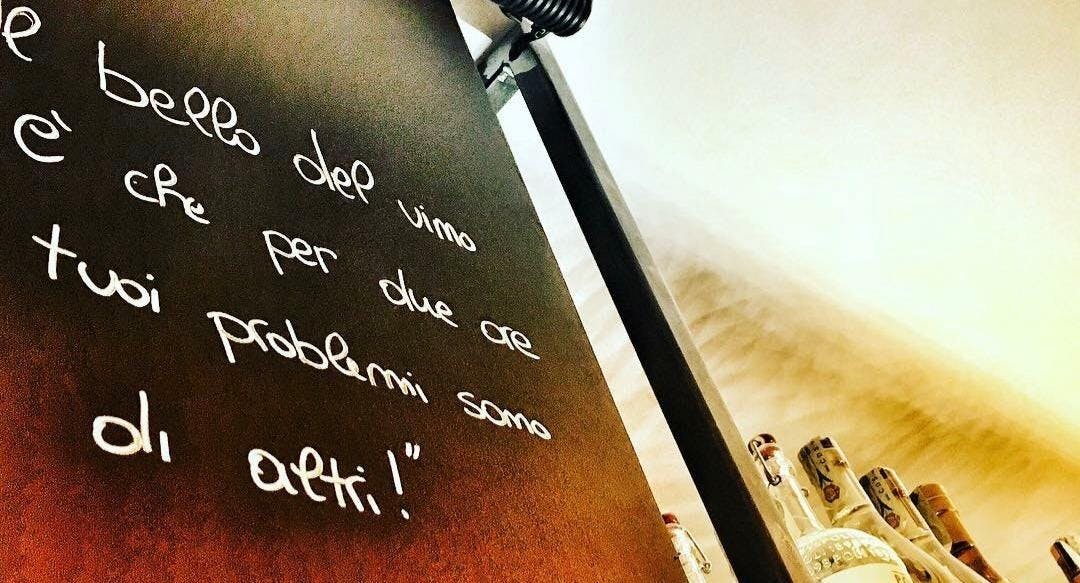 e bello del vino
e' che per due ore
tuoi problemi sono
di altri!"